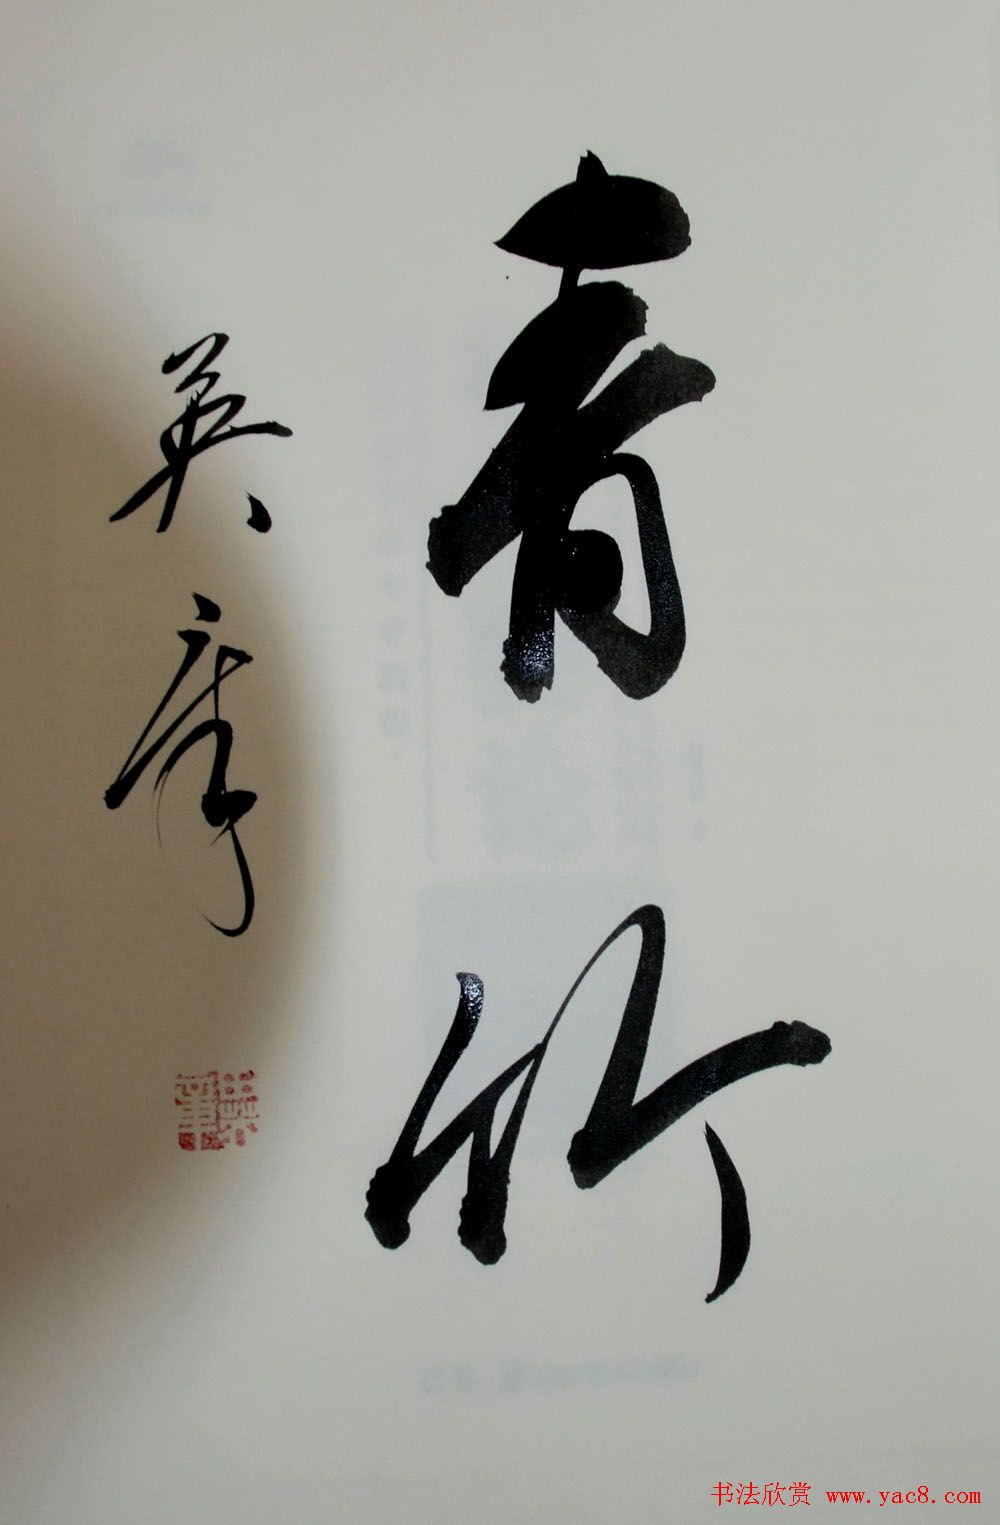 青竹
英章
书法欣赏 www.yac8.com